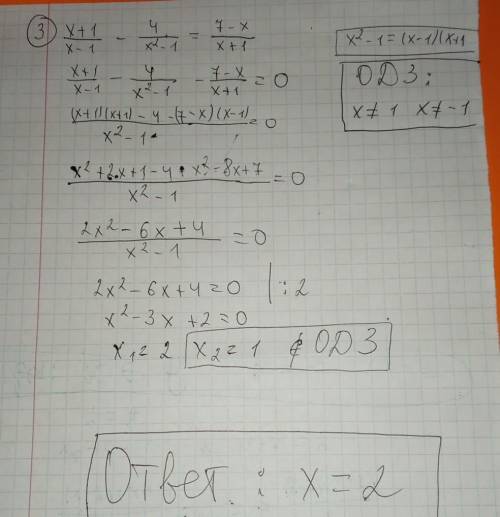 ③ (x+1)/(x-1) - 4/(x²-1) = (7-x)/(x+1)
x²-1=(x-1)(x+1
(x+1)/(x-1) - 4/(x²-1) - (7-x)/(x+1) = 0
ОДЗ:
x≠1 x≠-1
((x+1)(x+1)-4-(7-x)(x-1))/(x²-1) = 0
(x²+2x+1-4+x²-8x+7)/(x²-1) = 0
(2x²-6x+4)/(x²-1) = 0
2x²-6x+4=0 |:2
x²-3x+2=0
x₁=2 x₂=1 ∉ ОДЗ
Ответ: x=2